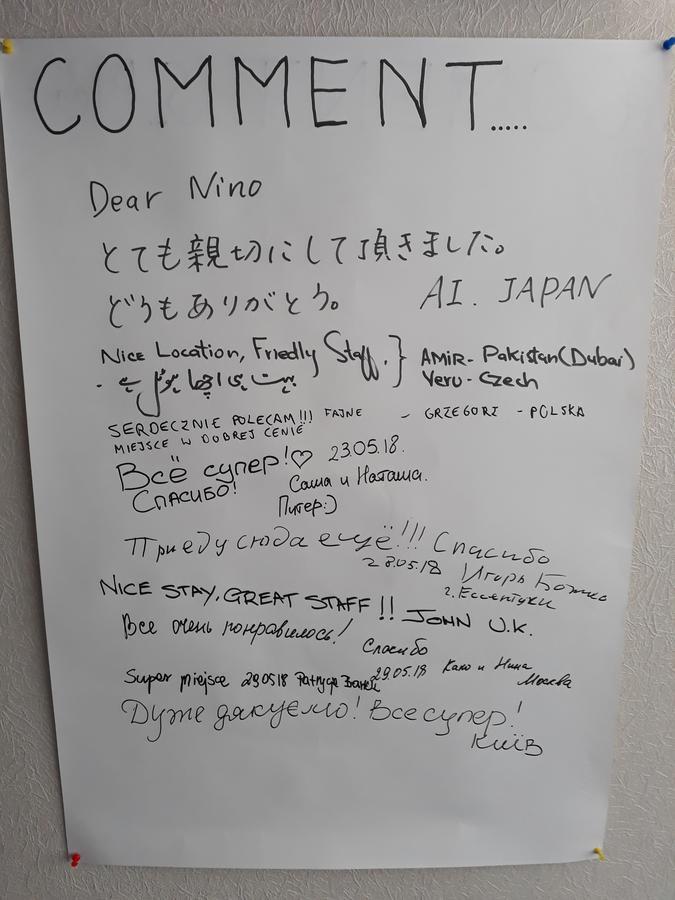 COMMENT.....
Dear Nino
とても親切にして頂きました。
どうもありがとう。 AI. JAPAN
Nice Location, Friedly Staff. } AMIR- Pakistan(Dubai)
بہت ہی اچھا ہوٹل ہے - Veru-Czech
SERDECZNIE POLECAM!!! FAJNE - GRZEGORZ - POLSKA
MIEJSCE W DOBREJ CENIE
Всё супер!♡ 23.05.18.
Спасибо! Саша и Наташа.
Питер:)
Приеду сюда ещё!!! Спасибо
28.05.18 Игорь
г. Ессентуки
NICE STAY, GREAT STAFF!! JOHN U.K.
Все очень понравилось!
Спасибо
29.05.18 Како и Нина
Москва
Super miejsce 29.05.18
Дуже дякуємо! Все супер!
Київ